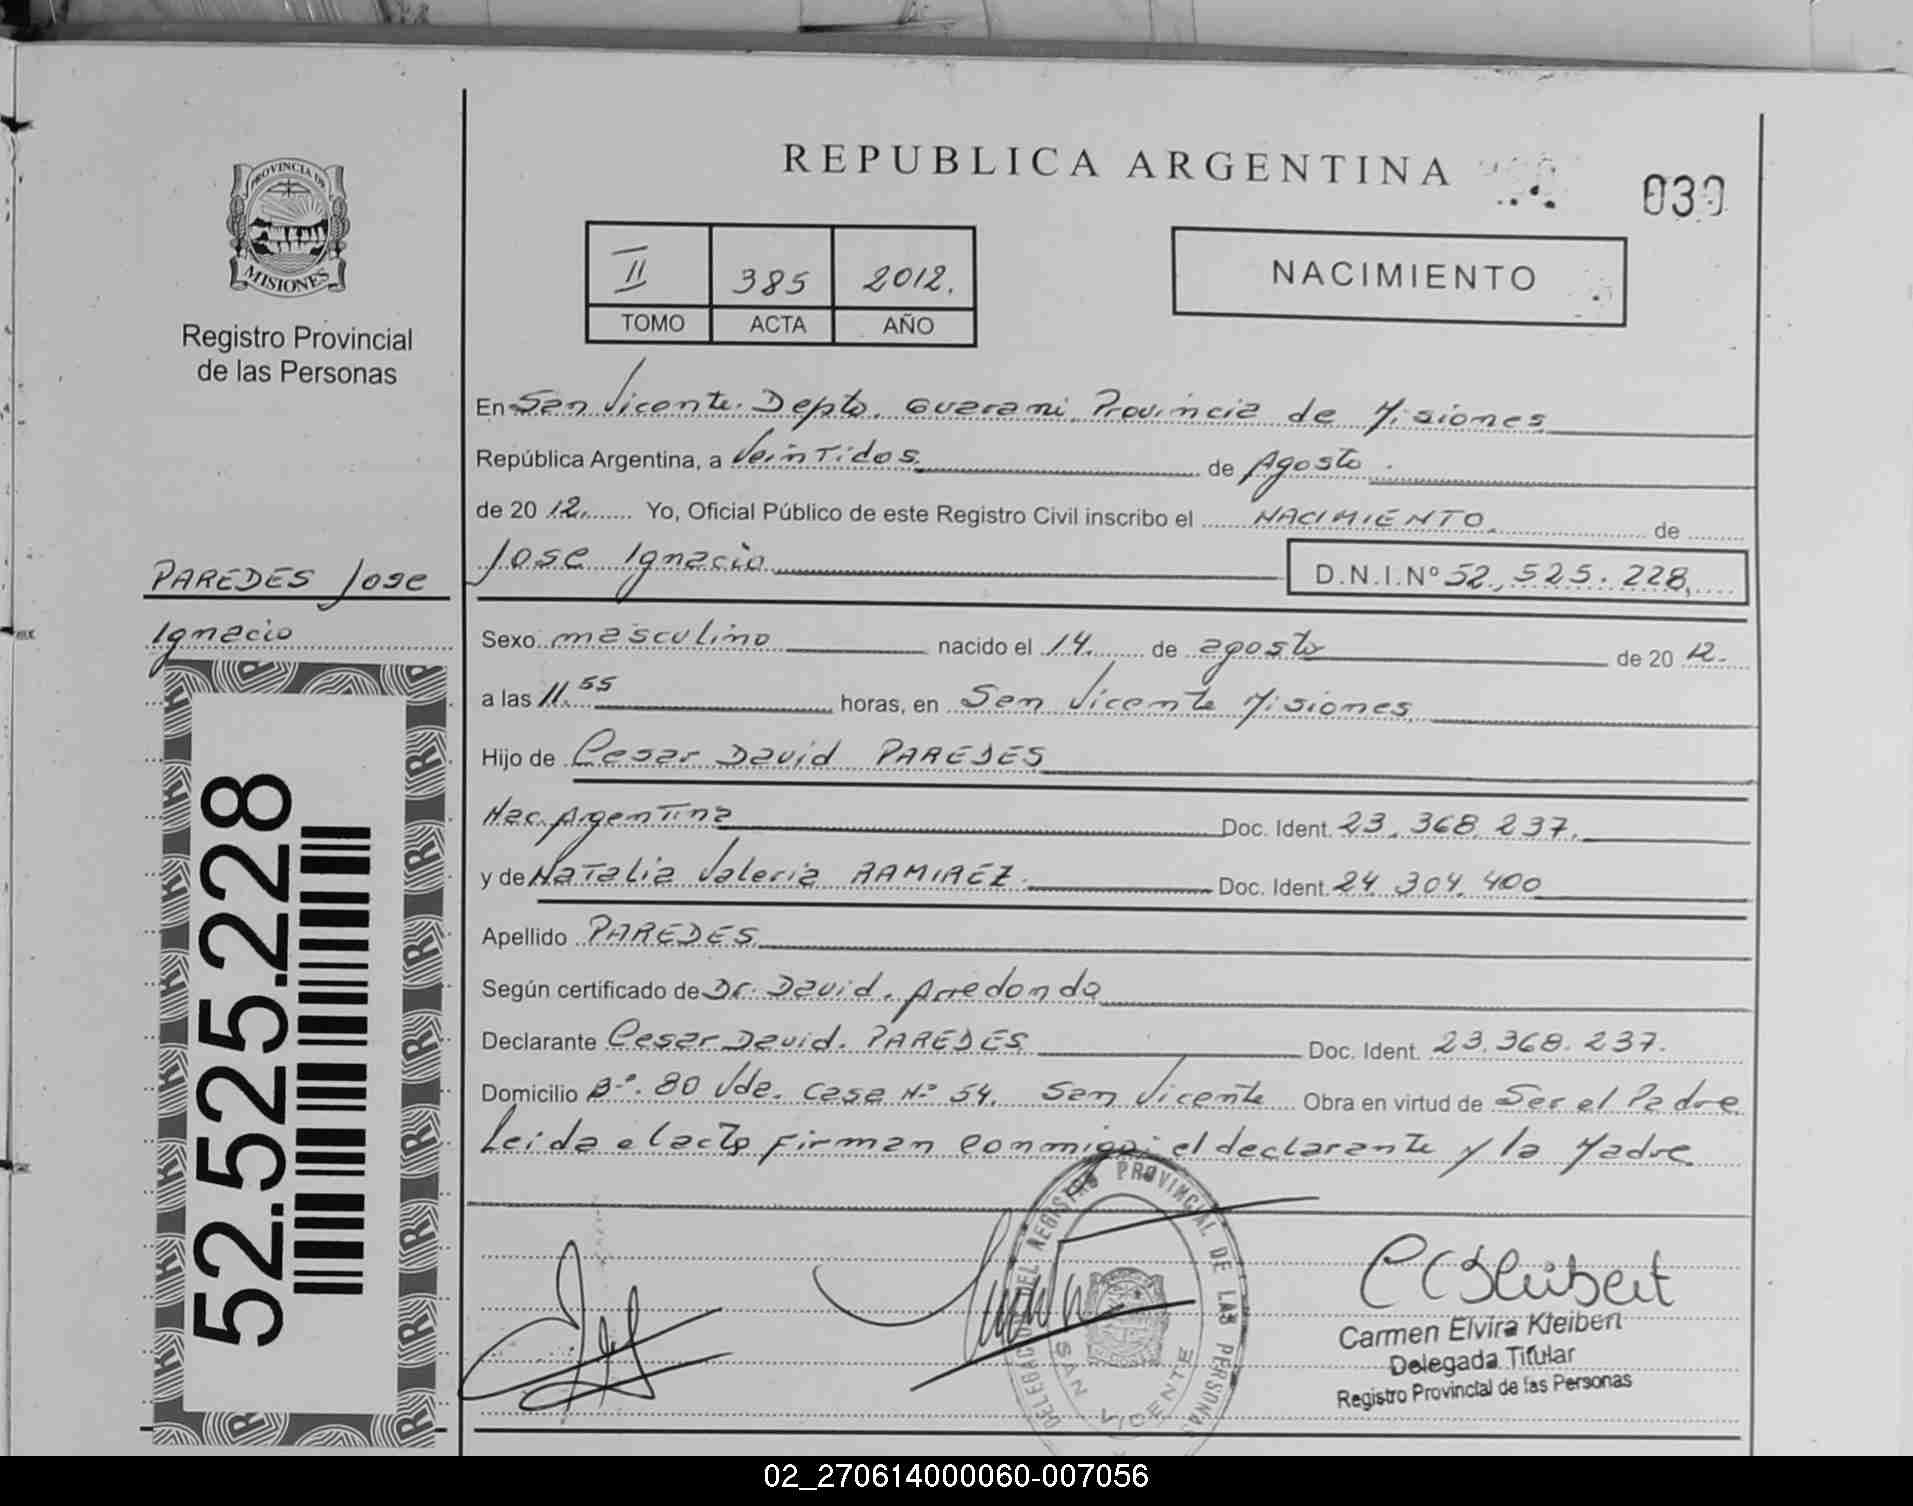 REPUBLICA ARGENTINA
030
PROVINCIA DE
MISIONES
Registro Provincial
de las Personas
II 385 2012.
TOMO ACTA AÑO
NACIMIENTO
En San Vicente. Depto. Guarani Provincia de Misiones
República Argentina, a Veintidos de Agosto.
de 20 12. Yo, Oficial Público de este Registro Civil inscribo el NACIMIENTO. de
Jose Ignacio
D.N.I.Nº 52.525.228,
PAREDES Jose
Ignacio
Sexo masculino nacido el 14. de agosto de 20 12.
a las 11.55 horas, en San Vicente Misiones
Hijo de Cesar David PAREDES
Nac. Argentina Doc. Ident. 23.368.237.
y de Natalia Valeria RAMIREZ. Doc. Ident. 24.304.400
Apellido PAREDES
Según certificado de Dr. David. Arredondo
Declarante Cesar David. PAREDES Doc. Ident. 23.368.237.
Domicilio Bº. 80 Vde. Casa Nº 54. San Vicente Obra en virtud de Ser el Padre
Leida el acto Firman conmigo: el declarante y la Madre
52.525.228
DELEGACION DEL REGISTRO PROVINCIAL DE LAS PERSONAS
SAN VICENTE
Carmen Elvira Kleibert
Delegada Titular
Registro Provincial de las Personas
02_270614000060-007056